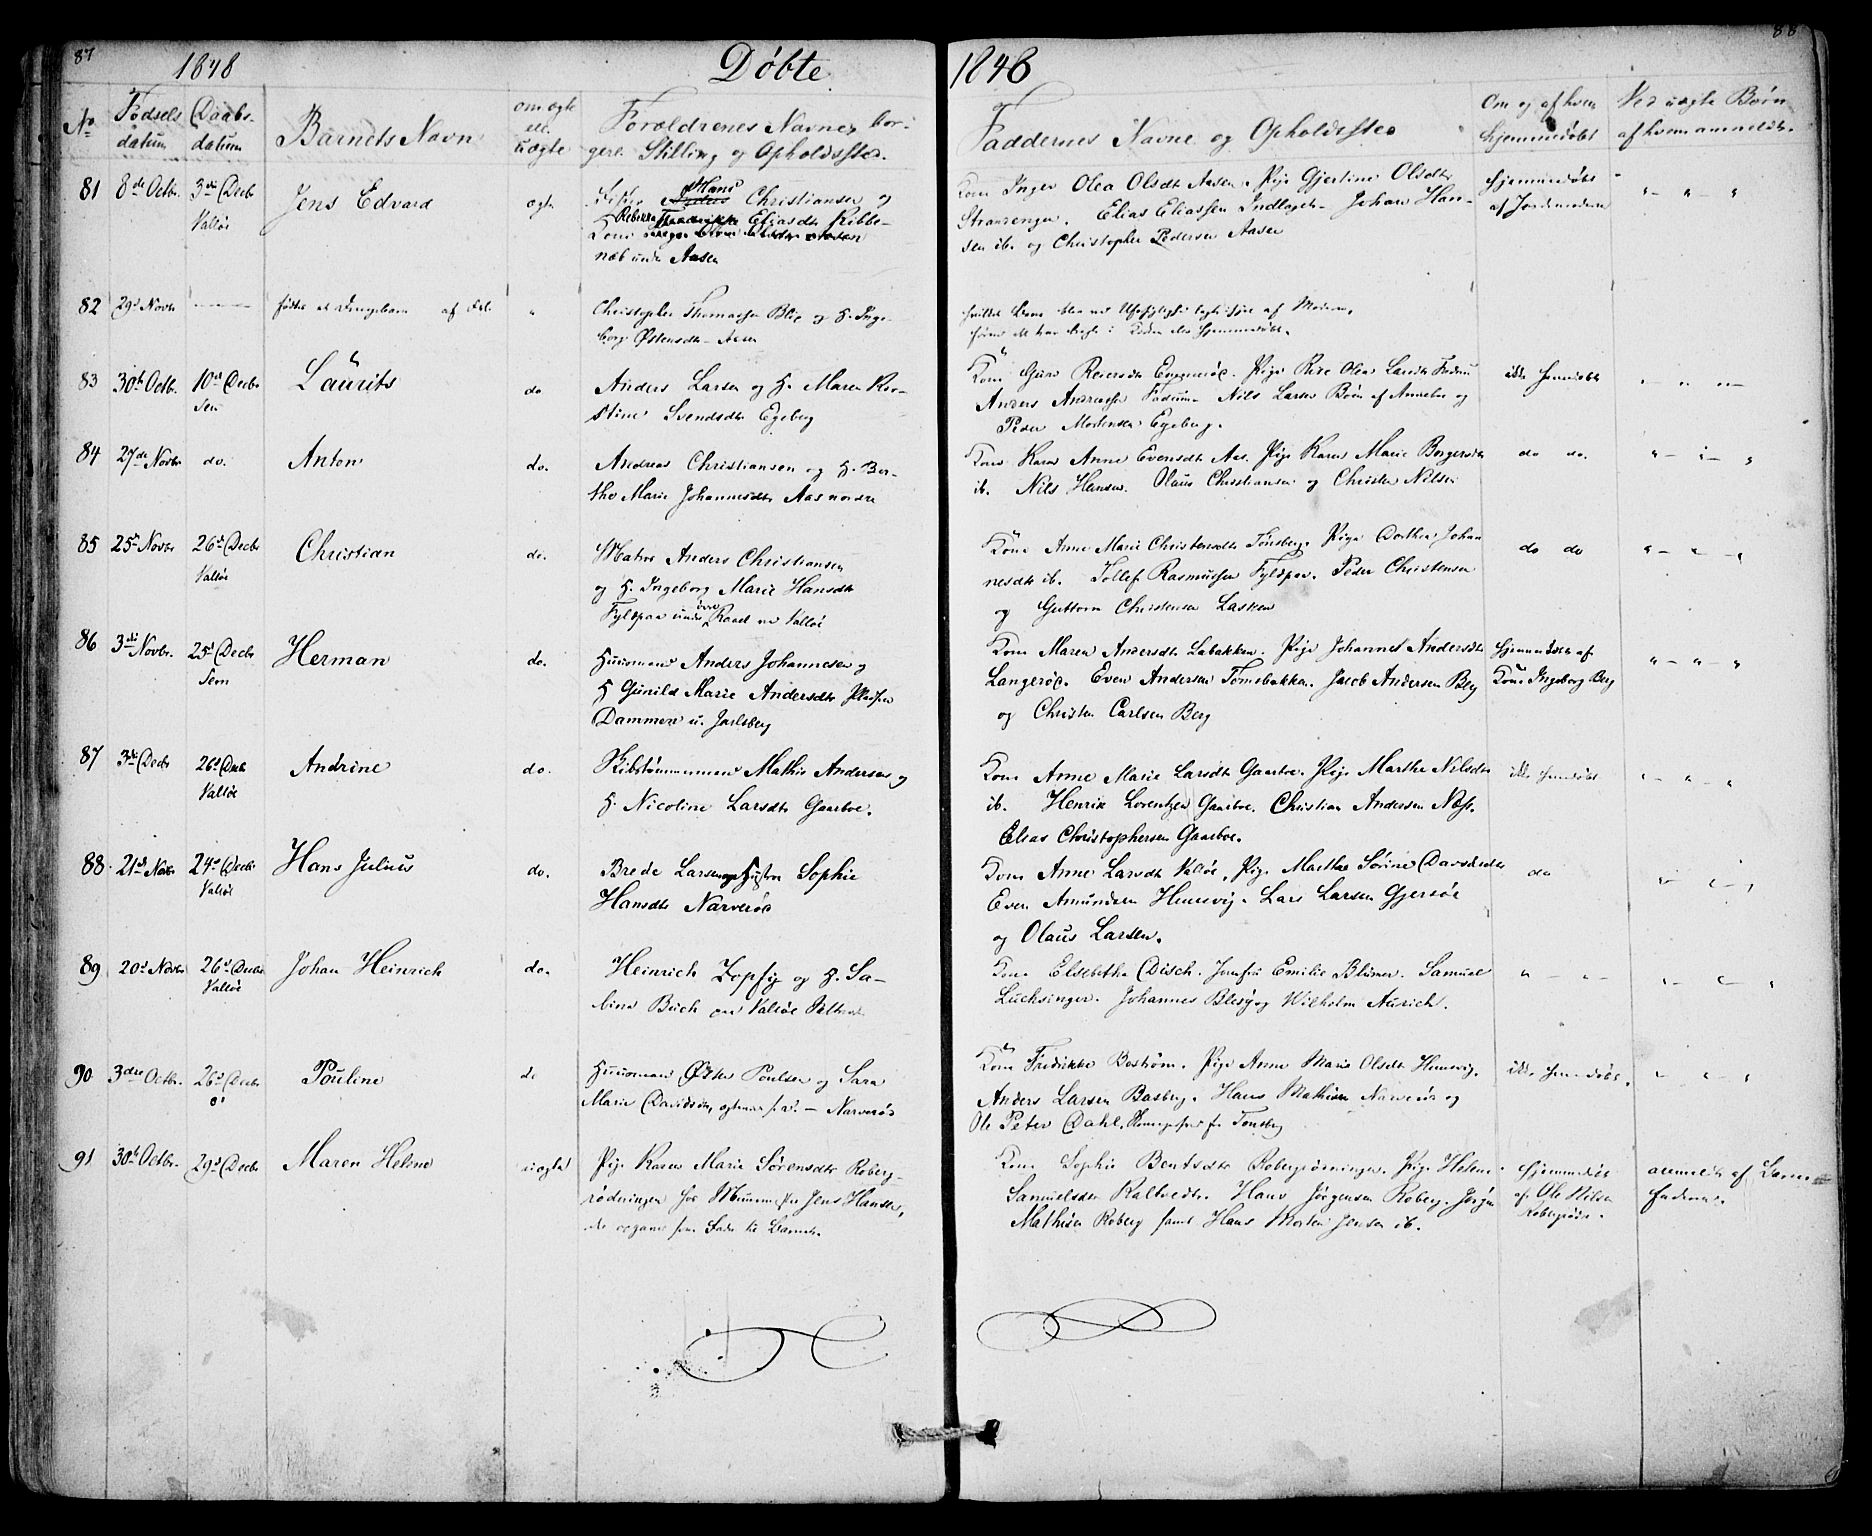 87
88
1848 Døbte 1848
No
Fødsels datum
Daabs- datum
Barnets Navn
om ægte ell. uægte
Forældrenes Navne, bor-
gerl. Stilling og Opholdssted.
Faddernes Navne og Opholdssted
Om og af hvem hjemmedøbt
Ved uægte Børn af hvem anmeldt.
81 8de Octb. 3die Decbr Valløe Jens Edvard ægte
Hans Christiansen og
Rebekka Eliasdtr Ribbe-
næb under Aasen
Kone Inger Olea Olsdtr Aasen. Pige Gjertine Olsdtr
Strandengen. Elias Eliassen Indlaget. Johan Han-
sen ib. og Christopher Pedersen Aasen
hjemmedøbt af Jordemoderen " – " – "
82 29d Novbr
Christopher Thomassen og H. Inge-
borg Østensdtr Aasen
83 30te Octb. 10de Decbr Sem Laurits do
Anders Larsen og H. Maren Kir-
stine Svendsdtr Egeberg
Kone Guro Reiersdtr Pige Olea Larsdtr
Anders Andreassen Fadum. Nils Larsen og
Peder Mortensen Egeberg.
ikke hjemmedøbt " – " – "
84 27de Novbr do. Anton do.
Andreas Christiansen og H. Ber-
the Marie Johannesdtr Aas nordre
Kone Karen Anne Evensdtr Aas. Pige Karen Marie Borgersdtr
ib. Nils Hansen. Olaus Christiansen og Christen Nilsen
do do. " – " – "
85 25de Novbr 26d Decbr Valløe Christian do.
Matros Anders Christiansen
og H. Ingeborg Marie Hansdtr
Fyldpaa under øvre Raael ved Valløe
Kone Anne Marie Christensdtr Tønsberg. Pige Dorthea Johan
nesdtr ib. Tollef Rasmussen Fyldpaa. Peder Christensen
og Guttorm Christensen Lasken
do do " – " – "
86 3die Novbr. 25d Decbr Sem Herman do.
Huusmand Anders Johannesen og
H Gunild Marie Andersdtr
Dammen u. Jarlsberg
Kone Maren Andersdtr Labakken. Pige Johanne Andersdtr
Langerød. Even Andersen Tømsbakken. Jacob Andersen Berg
og Christen Carlsen Berg
hjemmedøbt af
Kone Ingeborg Berg " – " – "
87 3die Decbr 26d Decbr Valløe Andrine do.
Mathis Andersen og
H. Nicoline Larsdtr Gaarboe.
Kone Anne Marie Larsdtr Gaarboe. Pige Marthe Nilsdtr
ib. Henrik Lorentzen Gaarboe. Christian Andersen Næs.
Elias Christophersen Gaarboe.
ikke hjemmedøbt " – " – "
88 21de Novbr 24d Decbr Valløe Hans Julius do.
Brede Larsen og Hustru Sophie
Hansdtr Narverød
Kone Anne Larsdtr Valløe, Pige Marthe Sørine Davidsdtr
Even Amundsen Husvig. Lars Larsen Gjersøe
og Olaus Larsen.
do " – " – "
89 20d Novbr 26d Decbr Valløe Johan Heinrich do.
Heinrich Zopfy og H. Sa-
bine Buch ved Valløe Saltværk
Kone Elisabetha Disch. Jomfru Emilie Blumer. Samuel
Luchsinger. Johannes Blesy og Wilhelm Aurich.
" " – " – " – "
90 3die Octbr. 26d Decbr Pouline do
Huusmand Poulsen og Sara
Marie Davidsen, Narverød
Kone Fredrikke Bostrøm. Pige Anne Marie Olsdtr Husvig.
Anders Larsen Basberg. Hans Mathisen Narverød og
Ole Peter Dahl, fra Tønsberg
ikke hjemmedøbt. " – " – "
91 30te Octbr. 29d Decbr Maren Helene uægte
Pige Karen Marie Sørensdtr Roberg-
rødningen Jens Hansen,
som Fader til Barnet.
Kone Sophie Bentsdtr Robergrødningen. Pige Helene
Samuelsdtr Kaltvedt. Hans Jørgensen Roberg. Jørgen
Mathisen Roberg samt Hans Morten Jensen ib.
hjemmedøbt
af Ole Nilsen
anmeldt af Barne-
faderen.